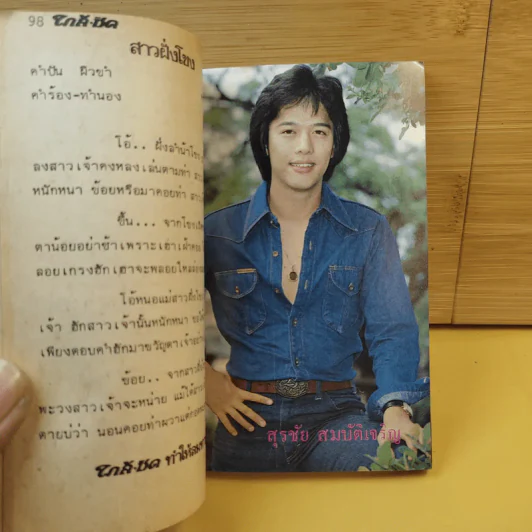 98 ใกล้-ชิด
สาวฝั่งโขง
คำปัน ผิวขำ
คำร้อง-ทำนอง
โอ้.. ฝั่งลำน้ำโขง
ลงสาวเจ้าคงหลงเล่นตามท่า
หนักหนา ข้อยหรือมาคอยท่า
ขึ้น... จากโขง
ตาน้อยอย่าช้าเพราะเฮาเฝ้าคอย
ลอยเกวงฮักเฮาจะพลอยไหลล่อง
โอ้หนอแม่สาวฝั่งโขง
เจ้า ฮักสาวเจ้านั้นหนักหนา
เพียงตอบคำฮักมาขวัญตา
ข้อย.. จากสาวฝั่ง
พะวงสาวเจ้าจะหน่าย แม้ได้
ตายบ่ว่า นอนคอยท่าผวา
ใกล้-ชิด ทำให้
สุรชัย สมบัติเจริญ